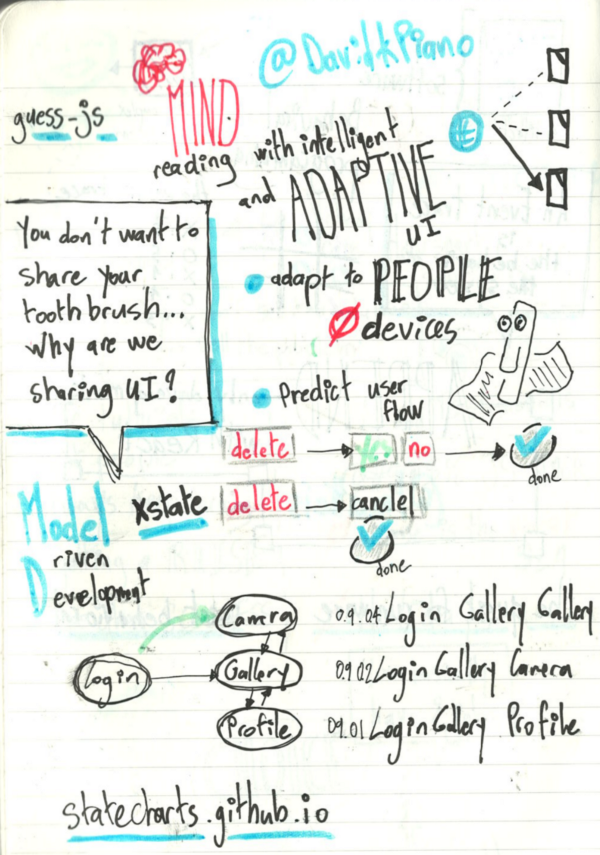 @DavidkPiano
guess-js
MIND
reading
with intelligent
and ADAPTIVE
UI
You don't want to
share your
toothbrush...
Why are we
sharing UI?
adapt to PEOPLE
devices
Predict user
flow
delete
no
done
Model
xstate
delete
canclel
done
Driven
Development
Camera
09.04 Login Gallery Gallery
Login
Gallery
0.9 02 Login Gallery Camera
Profile
09.01 Login Gallery Profile
statecharts.github.io